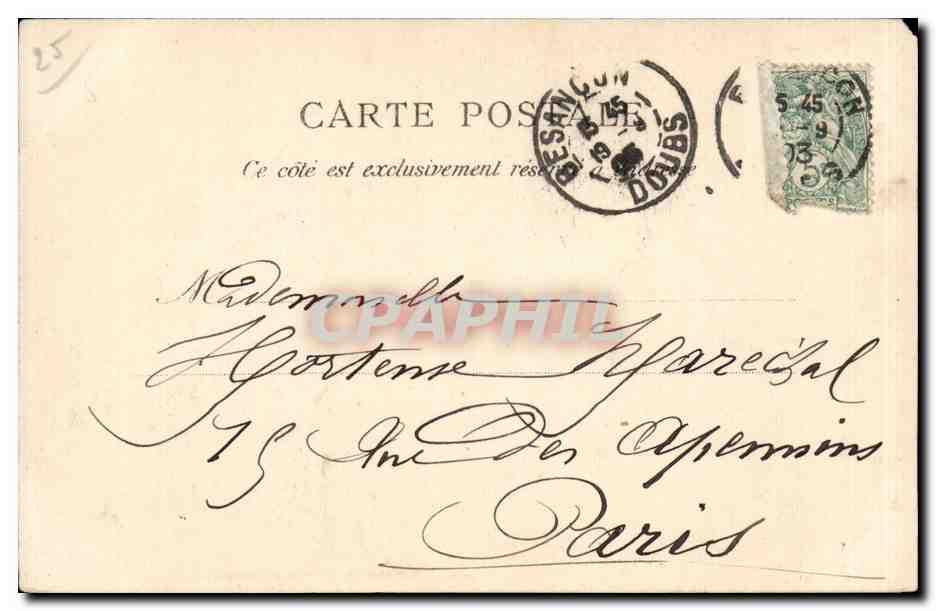 25
CARTE POSTALE
Ce côté est exclusivement
BESANÇON
DOUBS
5 45
9
03
5
Mademoiselle
Hortense Maréchal
15 Rue Des Apennins
Paris
CPAPHIL